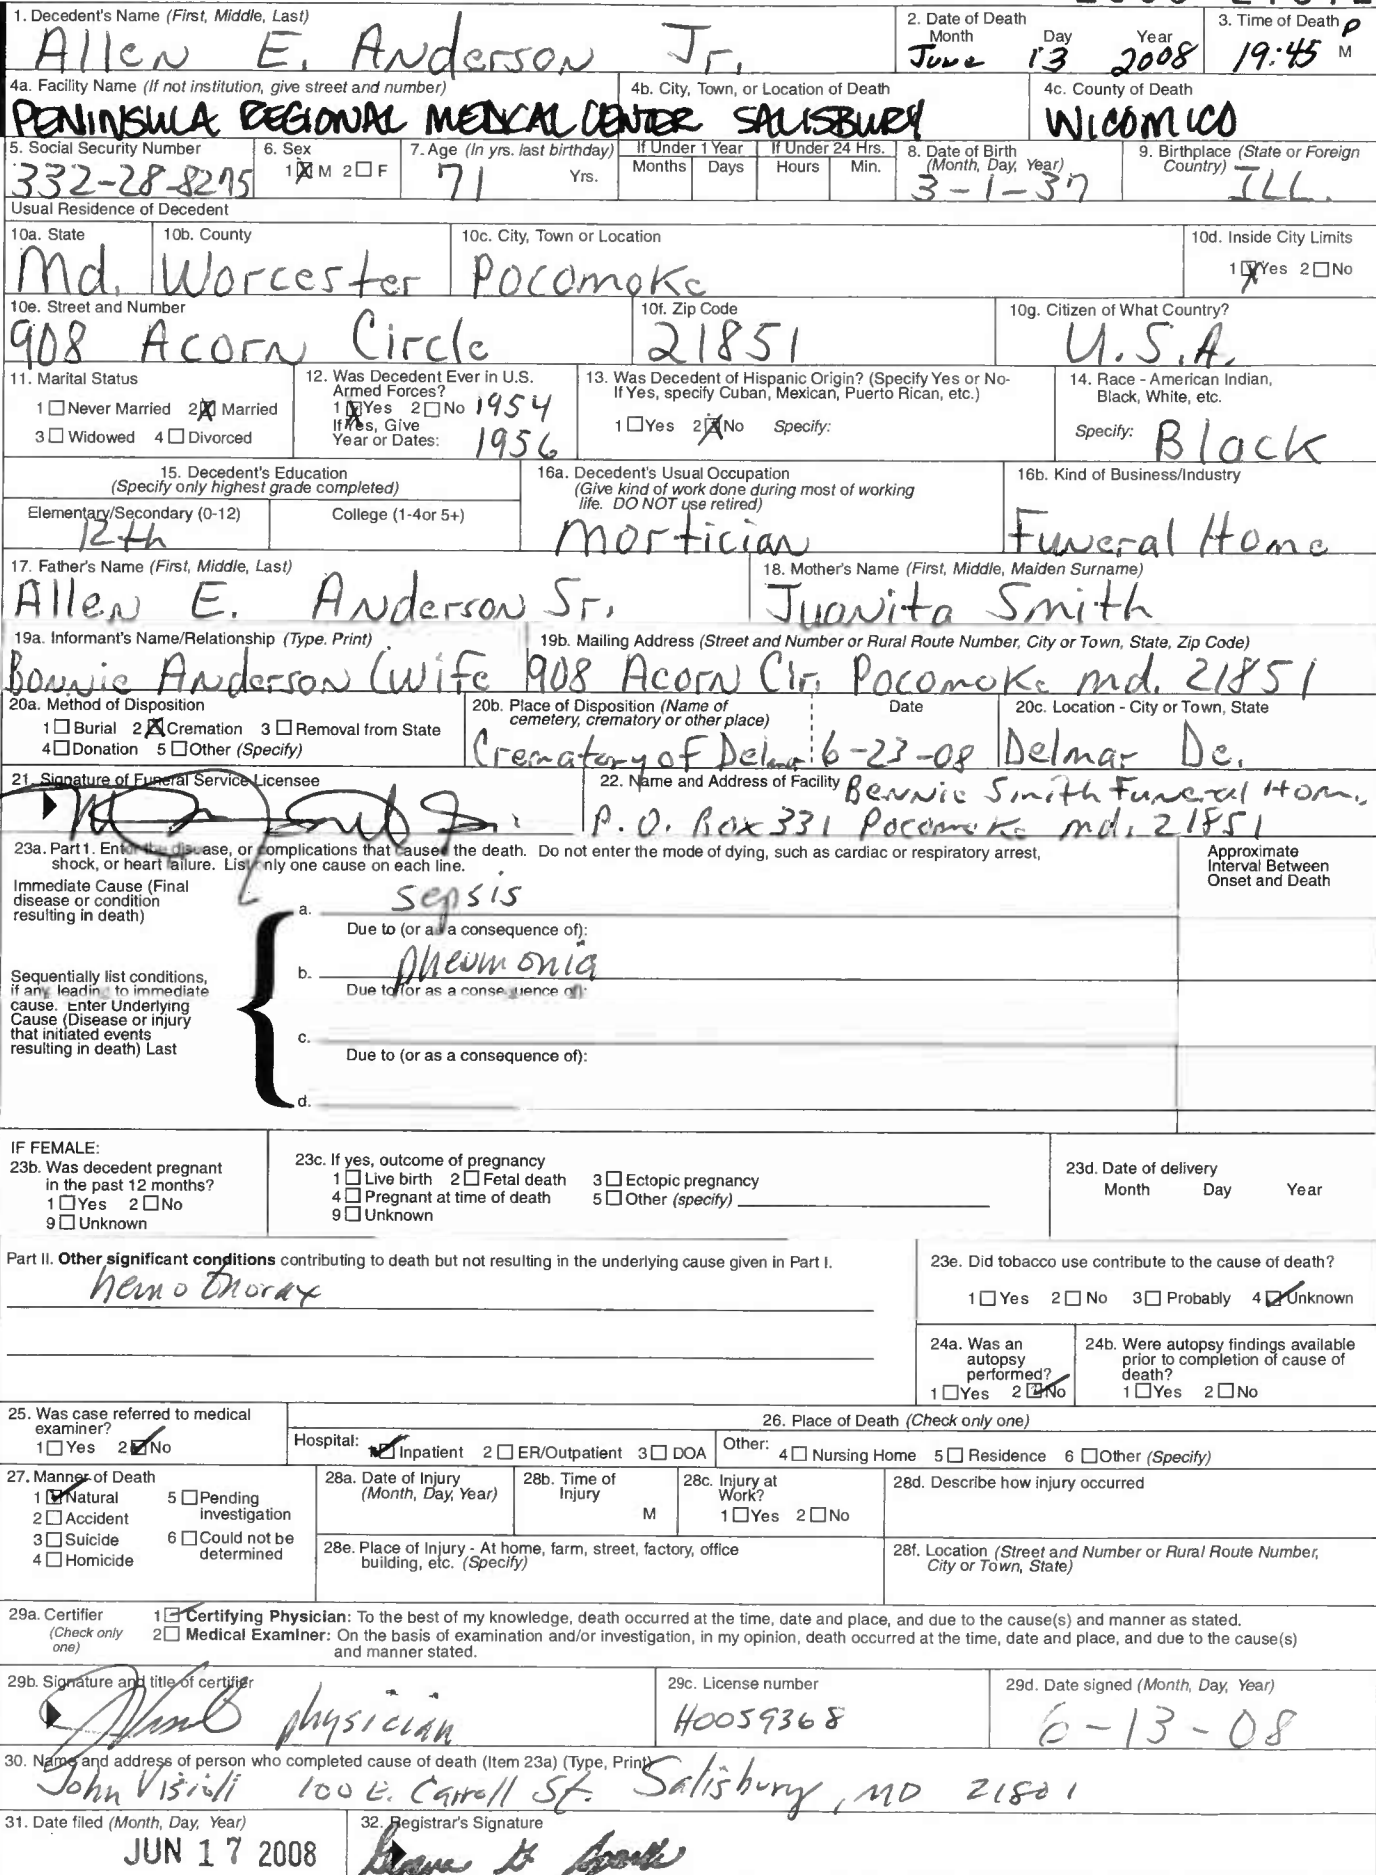 1. Decedent's Name (First, Middle, Last)
Allen E. Anderson Jr.
2. Date of Death
Month Day Year
June 13 2008
3. Time of Death P
19:45 M
4a. Facility Name (If not institution, give street and number)
PENINSULA REGIONAL MEDICAL CENTER
4b. City, Town, or Location of Death
SALISBURY
4c. County of Death
WICOMICO
5. Social Security Number
332-28-8275
6. Sex
1 ☒ M 2 ☐ F
7. Age (In yrs. last birthday)
71 Yrs.
If Under 1 Year
Months Days
If Under 24 Hrs.
Hours Min.
8. Date of Birth
(Month, Day, Year)
3-1-37
9. Birthplace (State or Foreign
Country)
ILL.
Usual Residence of Decedent
10a. State
Md.
10b. County
Worcester
10c. City, Town or Location
Pocomoke
10d. Inside City Limits
1 ☒ Yes 2 ☐ No
10e. Street and Number
908 Acorn Circle
10f. Zip Code
21851
10g. Citizen of What Country?
U.S.A.
11. Marital Status
1 ☐ Never Married 2 ☒ Married
3 ☐ Widowed 4 ☐ Divorced
12. Was Decedent Ever in U.S.
Armed Forces?
1 ☒ Yes 2 ☐ No 1954
If Yes, Give
Year or Dates: 1956
13. Was Decedent of Hispanic Origin? (Specify Yes or No-
If Yes, specify Cuban, Mexican, Puerto Rican, etc.)
1 ☐ Yes 2 ☒ No Specify:
14. Race - American Indian,
Black, White, etc.
Specify: Black
15. Decedent's Education
(Specify only highest grade completed)
Elementary/Secondary (0-12)
12th
College (1-4or 5+)
16a. Decedent's Usual Occupation
(Give kind of work done during most of working
life. DO NOT use retired)
mortician
16b. Kind of Business/Industry
Funeral Home
17. Father's Name (First, Middle, Last)
Allen E. Anderson Sr.
18. Mother's Name (First, Middle, Maiden Surname)
Juanita Smith
19a. Informant's Name/Relationship (Type. Print)
Bonnie Anderson (wife
19b. Mailing Address (Street and Number or Rural Route Number, City or Town, State, Zip Code)
908 Acorn Cir. Pocomoke md. 21851
20a. Method of Disposition
1 ☐ Burial 2 ☒ Cremation 3 ☐ Removal from State
4 ☐ Donation 5 ☐ Other (Specify)
20b. Place of Disposition (Name of
cemetery, crematory or other place)
Crematory of Delmar
Date
6-23-08
20c. Location - City or Town, State
Delmar De.
21. Signature of Funeral Service Licensee
22. Name and Address of Facility Bennie Smith Funeral Hom.
P.O. Box 331 Pocomoke md. 21851
23a. Part 1. Enter the disease, or complications that caused the death. Do not enter the mode of dying, such as cardiac or respiratory arrest,
shock, or heart failure. List only one cause on each line.
Approximate
Interval Between
Onset and Death
Immediate Cause (Final
disease or condition
resulting in death)
a. sepsis
Due to (or as a consequence of):
b. pneumonia
Due to (or as a consequence of):
Sequentially list conditions,
if any, leading to immediate
cause. Enter Underlying
Cause (Disease or injury
that initiated events
resulting in death) Last
c.
Due to (or as a consequence of):
d.
IF FEMALE:
23b. Was decedent pregnant
in the past 12 months?
1 ☐ Yes 2 ☐ No
9 ☐ Unknown
23c. If yes, outcome of pregnancy
1 ☐ Live birth 2 ☐ Fetal death 3 ☐ Ectopic pregnancy
4 ☐ Pregnant at time of death 5 ☐ Other (specify)
9 ☐ Unknown
23d. Date of delivery
Month Day Year
Part II. Other significant conditions contributing to death but not resulting in the underlying cause given in Part I.
hemothorax
23e. Did tobacco use contribute to the cause of death?
1 ☐ Yes 2 ☐ No 3 ☐ Probably 4 ☑ Unknown
24a. Was an
autopsy
performed?
1 ☐ Yes 2 ☑ No
24b. Were autopsy findings available
prior to completion of cause of
death?
1 ☐ Yes 2 ☐ No
25. Was case referred to medical
examiner?
1 ☐ Yes 2 ☑ No
26. Place of Death (Check only one)
Hospital: 1 ☑ Inpatient 2 ☐ ER/Outpatient 3 ☐ DOA
Other: 4 ☐ Nursing Home 5 ☐ Residence 6 ☐ Other (Specify)
27. Manner of Death
1 ☑ Natural 5 ☐ Pending
investigation
2 ☐ Accident
3 ☐ Suicide 6 ☐ Could not be
determined
4 ☐ Homicide
28a. Date of Injury
(Month, Day, Year)
28b. Time of
Injury
M
28c. Injury at
Work?
1 ☐ Yes 2 ☐ No
28d. Describe how injury occurred
28e. Place of Injury - At home, farm, street, factory, office
building, etc. (Specify)
28f. Location (Street and Number or Rural Route Number,
City or Town, State)
29a. Certifier
(Check only
one)
1 ☑ Certifying Physician: To the best of my knowledge, death occurred at the time, date and place, and due to the cause(s) and manner as stated.
2 ☐ Medical Examiner: On the basis of examination and/or investigation, in my opinion, death occurred at the time, date and place, and due to the cause(s)
and manner stated.
29b. Signature and title of certifier
physician
29c. License number
H0059368
29d. Date signed (Month, Day, Year)
6-13-08
30. Name and address of person who completed cause of death (Item 23a) (Type, Print)
John Visioli 100 E. Carroll St. Salisbury, MD 21801
31. Date filed (Month, Day, Year)
JUN 17 2008
32. Registrar's Signature